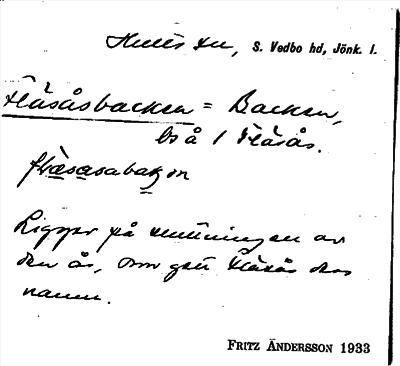 Hults sn, S. Vedbo hd, Jönk. l.
Fläsåsbacken = Backen,
bå 1 Fläsås.
Ligger på sluttningen av
den ås, som gett Fläsås dess
namn.
FRITZ ÄNDERSSON 1933